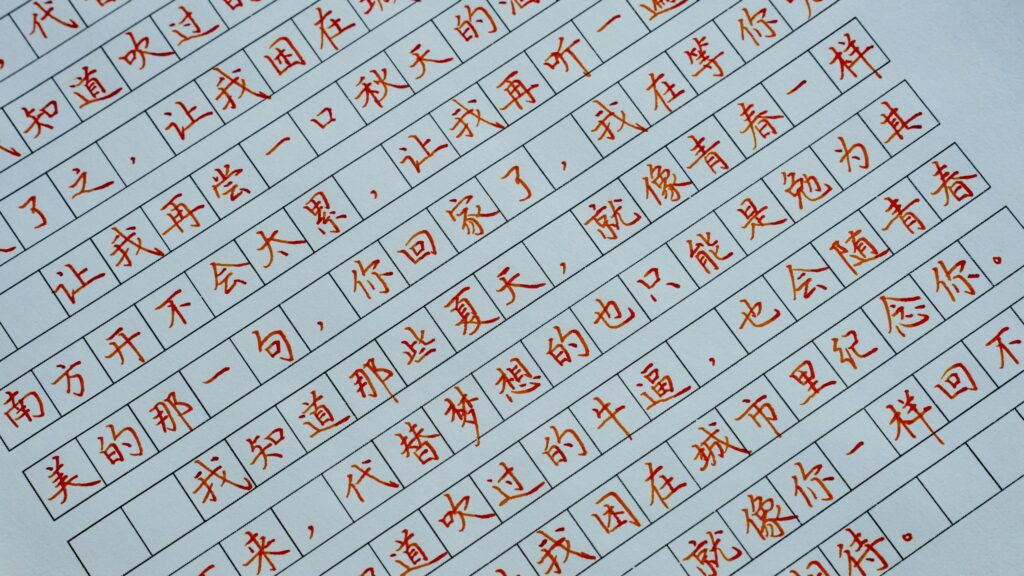 代
知道吹过的
了之，让我困在城
让我再尝一口秋天的酒
南方开不会太累，让我再听一遍
美的那一句，你回家了，我在等你呢
我知道那些夏天，就像青春一样
来，代替梦想的也只能是勉为其
道吹过的牛逼，也会随青春
我困在城市里纪念你。
就像你一样回不
待。